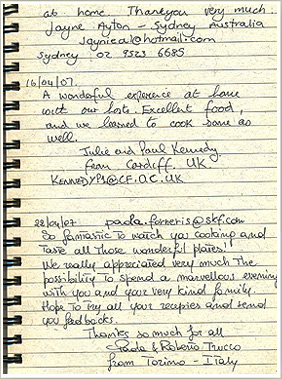 at home. Thankyou very much.
Jayne Ayton - Sydney Australia
jayniea1@hotmail.com
Sydney 02 9523 6685
16/04/07.
A wonderful experience at home
with our hosts. Excellent food,
and we learned to cook some as
well.
Julie and Paul Kennedy
from Cardiff, UK.
KENNEDYP1@CF.AC.UK
22/04/07 paola.forneris@skf.com
So fantastic to watch you cooking and
taste all those wonderful plates!
We really appreciated very much the
possibility to spend a marvellous evening
with you and your very kind family.
Hope to try all your recipies and send
you feedbacks.
Thanks so much for all
Paola & Roberto Trucco
from Torino - Italy